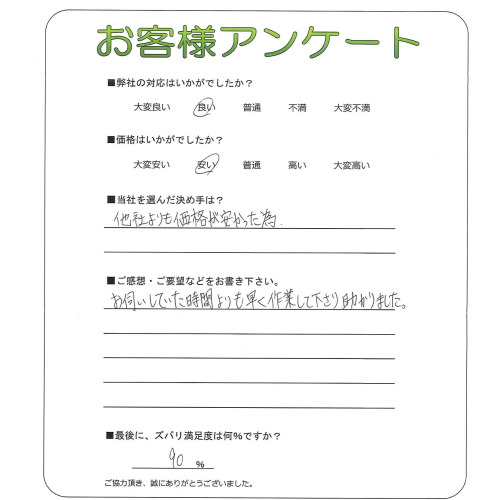 お客様アンケート
■弊社の対応はいかがでしたか？
大変良い 良い 普通 不満 大変不満
■価格はいかがでしたか？
大変安い 安い 普通 高い 大変高い
■当社を選んだ決め手は？
他社よりも価格が安かった為.
■ご感想・ご要望などをお書き下さい。
お伺いしていた時間よりも早く作業して下さり助かりました。
■最後に、ズバリ満足度は何％ですか？
90 ％
ご協力頂き、誠にありがとうございました。